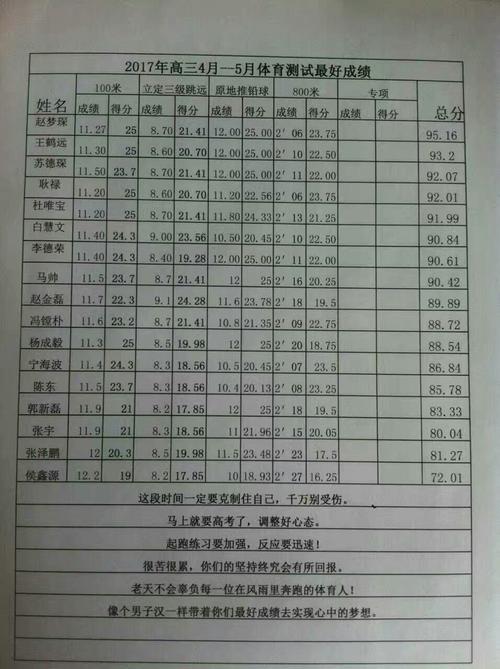 2017年高三4月--5月体育测试最好成绩
姓名 100米 立定三级跳远 原地推铅球 800米 专项 总分
成绩 得分 成绩 得分 成绩 得分 成绩 得分 成绩 得分
赵梦琛 11.27 25 8.70 21.41 12.00 25.00 2′06 23.75 95.16
王鹤远 11.30 25 8.60 20.70 12.00 25.00 2′10 22.50 93.2
苏德琛 11.50 23.7 8.70 21.41 12.00 25.00 2′11 22.00 92.07
耿禄 11.20 25 8.60 20.70 11.20 22.56 2′06 23.75 92.01
杜唯宝 11.20 25 8.70 21.41 11.80 24.33 2′13 21.25 91.99
白慧文 11.40 24.3 9.00 23.56 10.50 20.45 2′10 22.50 90.84
李德荣 11.40 24.3 8.40 19.28 12.00 25.00 2′11 22.00 90.61
马帅 11.5 23.7 8.7 21.41 12 25 2′16 20.25 90.42
赵金磊 11.7 22.3 9.1 24.28 11.6 23.78 2′18 19.5 89.89
冯镗朴 11.6 23.2 8.7 21.41 10.8 21.35 2′09 22.75 88.72
杨成毅 11.3 25 8.5 19.98 12 25 2′20 18.75 88.54
宁海波 11.4 24.3 8.3 18.56 10.5 20.45 2′07 23.5 86.84
陈东 11.5 23.7 8.3 18.56 10.4 20.13 2′08 23.25 85.78
郭新磊 11.9 21 8.2 17.85 12 25 2′18 19.5 83.33
张宇 11.9 21 8.3 18.56 11 21.96 2′15 20.05 80.04
张泽鹏 12 20.3 8.5 19.98 11.5 23.48 2′23 17.5 81.27
侯鑫源 12.2 19 8.2 17.85 10 18.93 2′27 16.25 72.01
这段时间一定要克制住自己，千万别受伤。
马上就要高考了，调整好心态。
起跑练习要加强，反应要迅速！
很苦很累，你们的坚持终究会有所回报。
老天不会辜负每一位在风雨里奔跑的体育人！
像个男子汉一样带着你们最好成绩去实现心中的梦想。